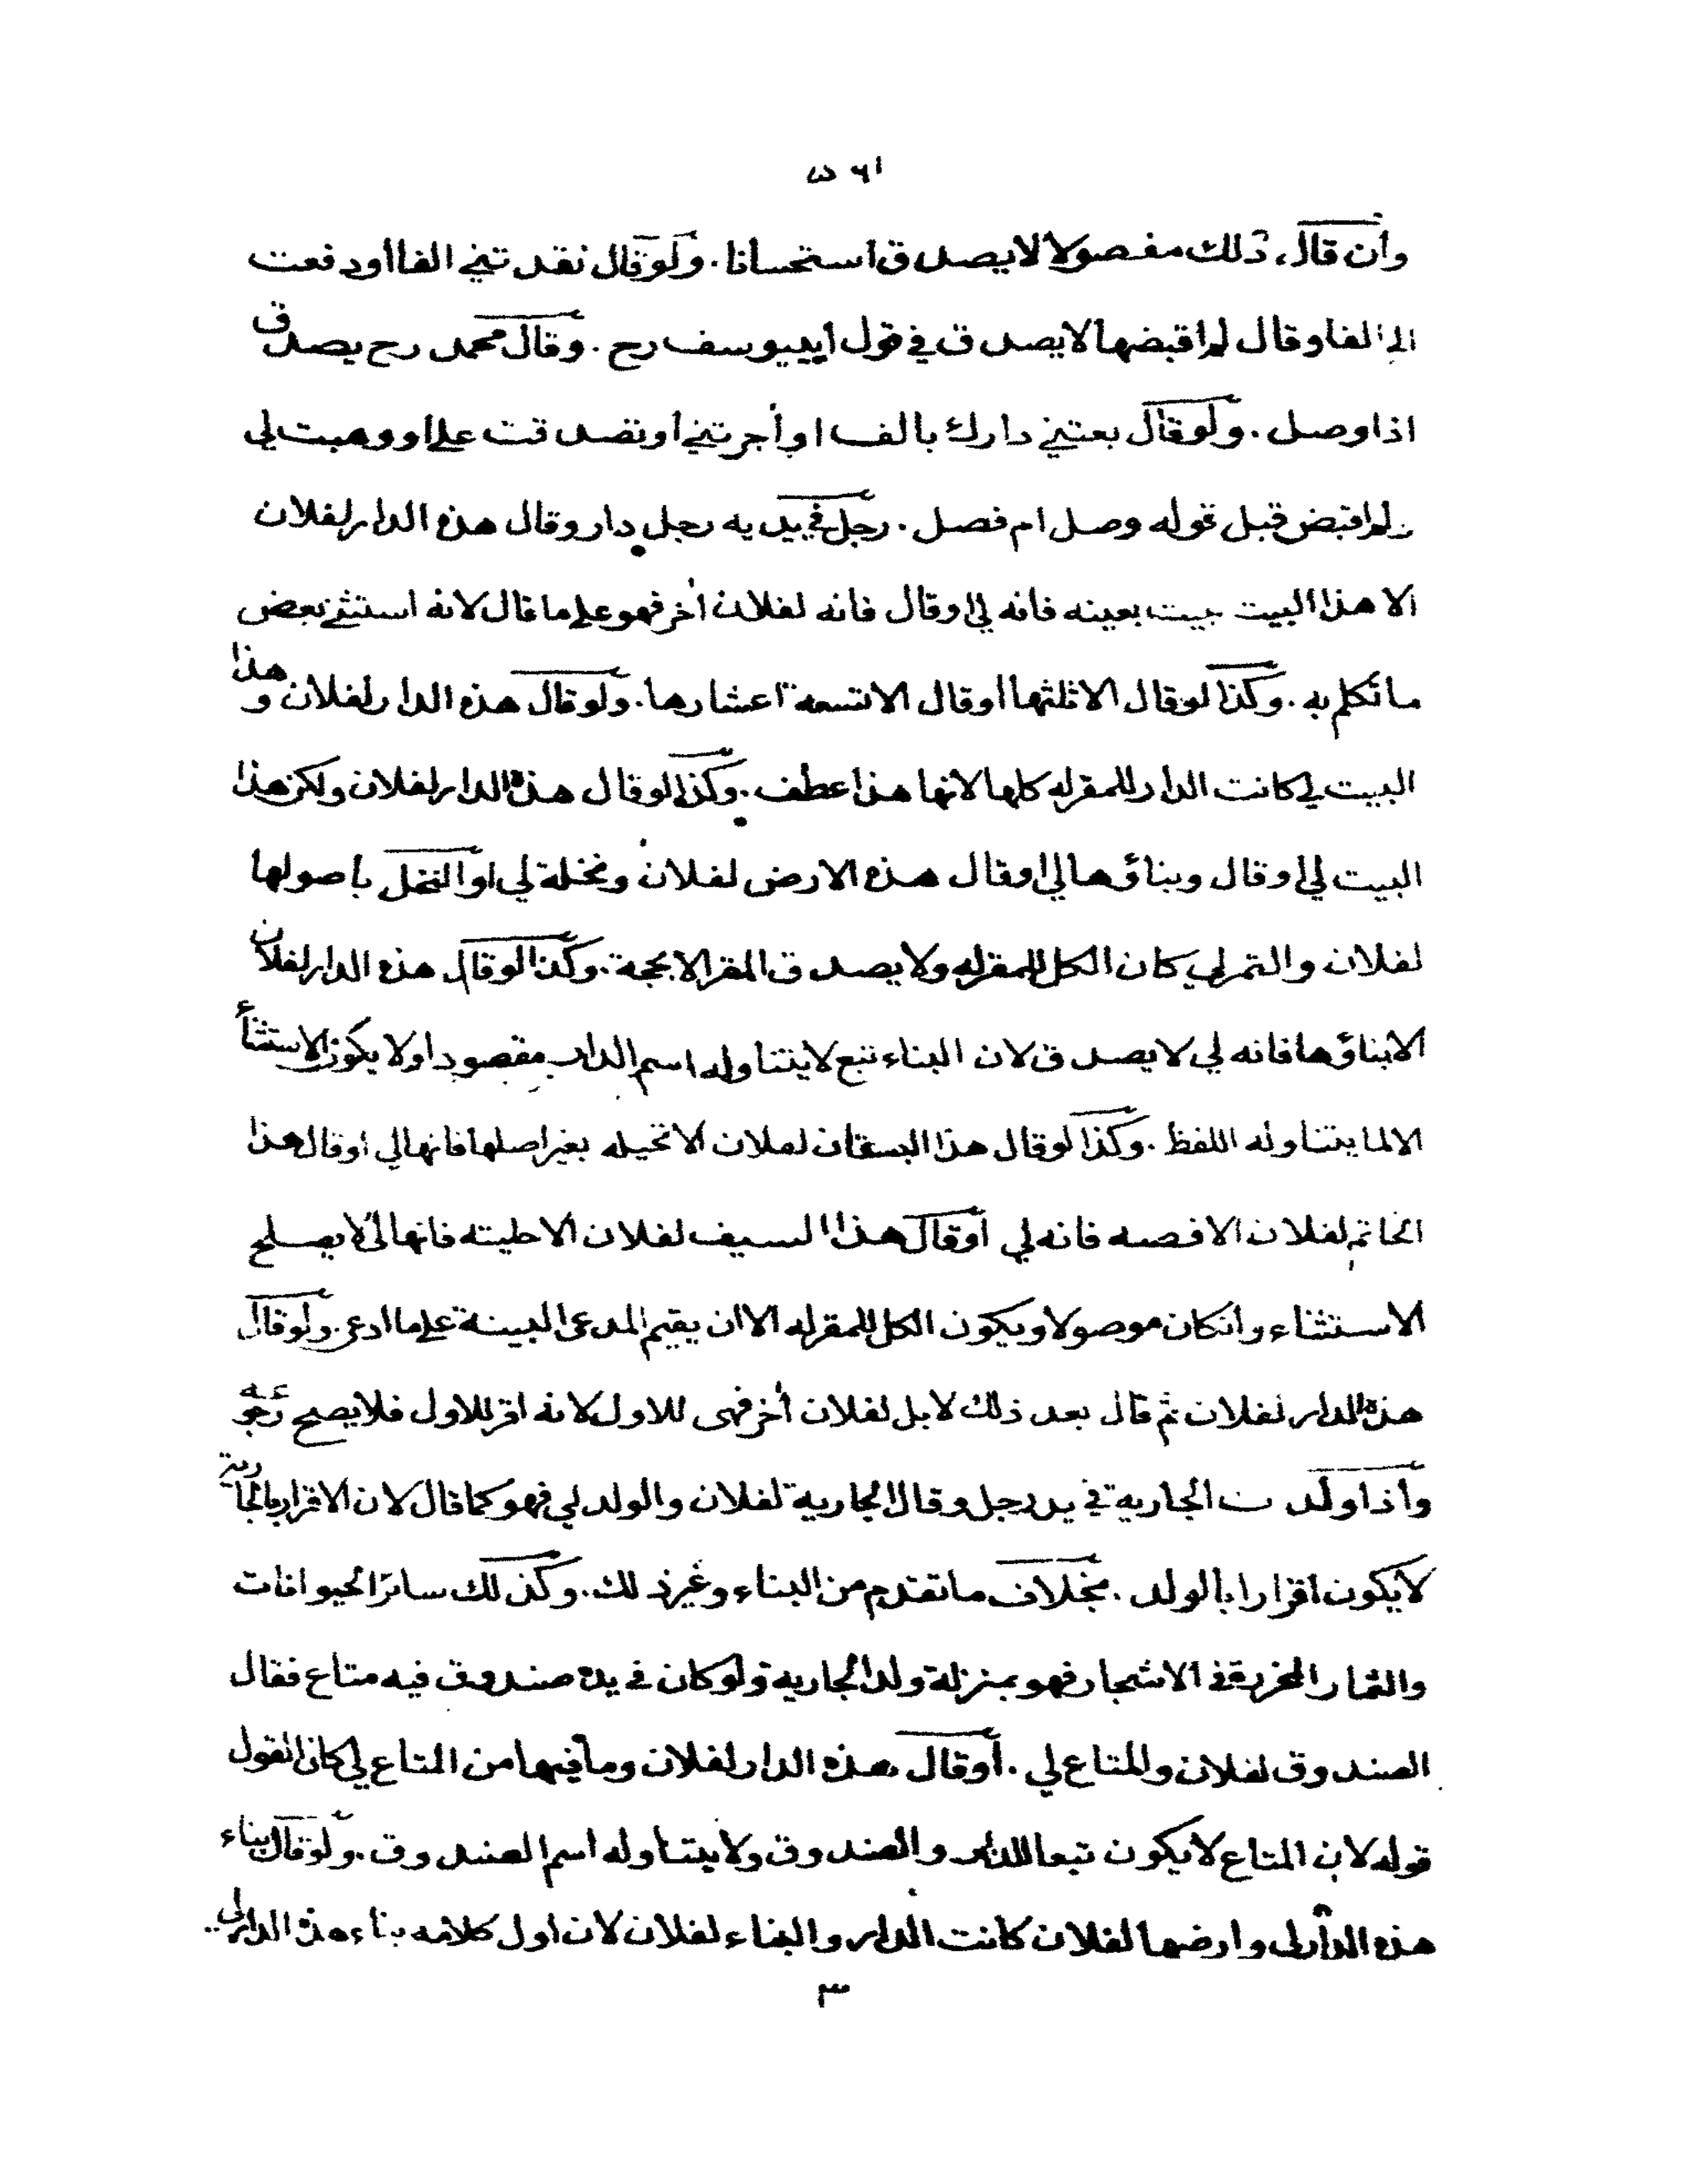 وان قال ذلك مفصولا لا يصدق استحسانا . ولو قال نقد تني الفا اودفعت
الي الفا وقال لم اقبضها لا يصدق في قول ابيوسف رح . وقال محمد رح يصدق
اذا وصل . ولو قال بعتني دارك بالف او أجرتني او تصدقت علي او وهبت لي
ولم اقبض قبل قوله وصل ام فصل . رجل في يديه رجل دار وقال هذه الدار لفلان
الا هذا البيت بيت بعينه فانه لي او قال فانه لفلان أخر فهو علي ما قال لانه استثني بعض
ما تكلم به . وكذا لو قال الا ثلثها او قال الا تسعة اعشارها . ولو قال هذه الدار لفلان و هذا
البيت لي كانت الدار للمقر له كلها لانها هذا عطف . وكذا لو قال هذه الدار لفلان ولكن هذا
البيت لي او قال وبناؤها لي او قال هذه الارض لفلان ونخلة لي او النخل باصولها
لفلان والتمر لي كان الكل للمقر له ولا يصدق المقر الا بحجة . وكذا لو قال هذه الدار لفلان
الا بناؤها فانه لي لا يصدق لان البناء تبع لا يتناوله اسم الدار مقصودا ولا يكون الاستثنأ
الا لما يتناوله اللفظ . وكذا لو قال هذا البستان لفلان الا نخيله بغير اصلها فانها لي او قال هذا
الخاتم لفلان الا فصه فانه لي أو قال هذا السيف لفلان الا حليته فانها لي لا يصلح
الاستثناء وانكان موصولا ويكون الكل للمقر له الا ان يقيم المدعى البينة علي ما ادعى . ولو قال
هذه الدار لفلان ثم قال بعد ذلك لا بل لفلان أخر فهى للاول لانه اقر للاول فلا يصح رجوعه
وأذا ولدت الجارية في يد رجل وقال الجارية لفلان والولد لي فهو كما قال لان الاقرار بالجارية
لا يكون اقرارا بالولد . بخلاف ما تقدم من البناء وغير ذلك . وكذلك سائر الحيوانات
والثمار المحرزة في الاشجار فهو بمنزلة ولد الجارية ولو كان في يده صندوق فيه متاع فقال
الصندوق لفلان والمتاع لي . أو قال هذه الدار لفلان وما فيها من المتاع لي كان القول
قوله لان المتاع لا يكون تبعا للدار والصندوق ولا يتناوله اسم الصندوق . ولو قال بناء
هذه الدار لى وارضها لفلان كانت الدار والبناء لفلان لان اول كلامه بناء هذه الدار لى
٣